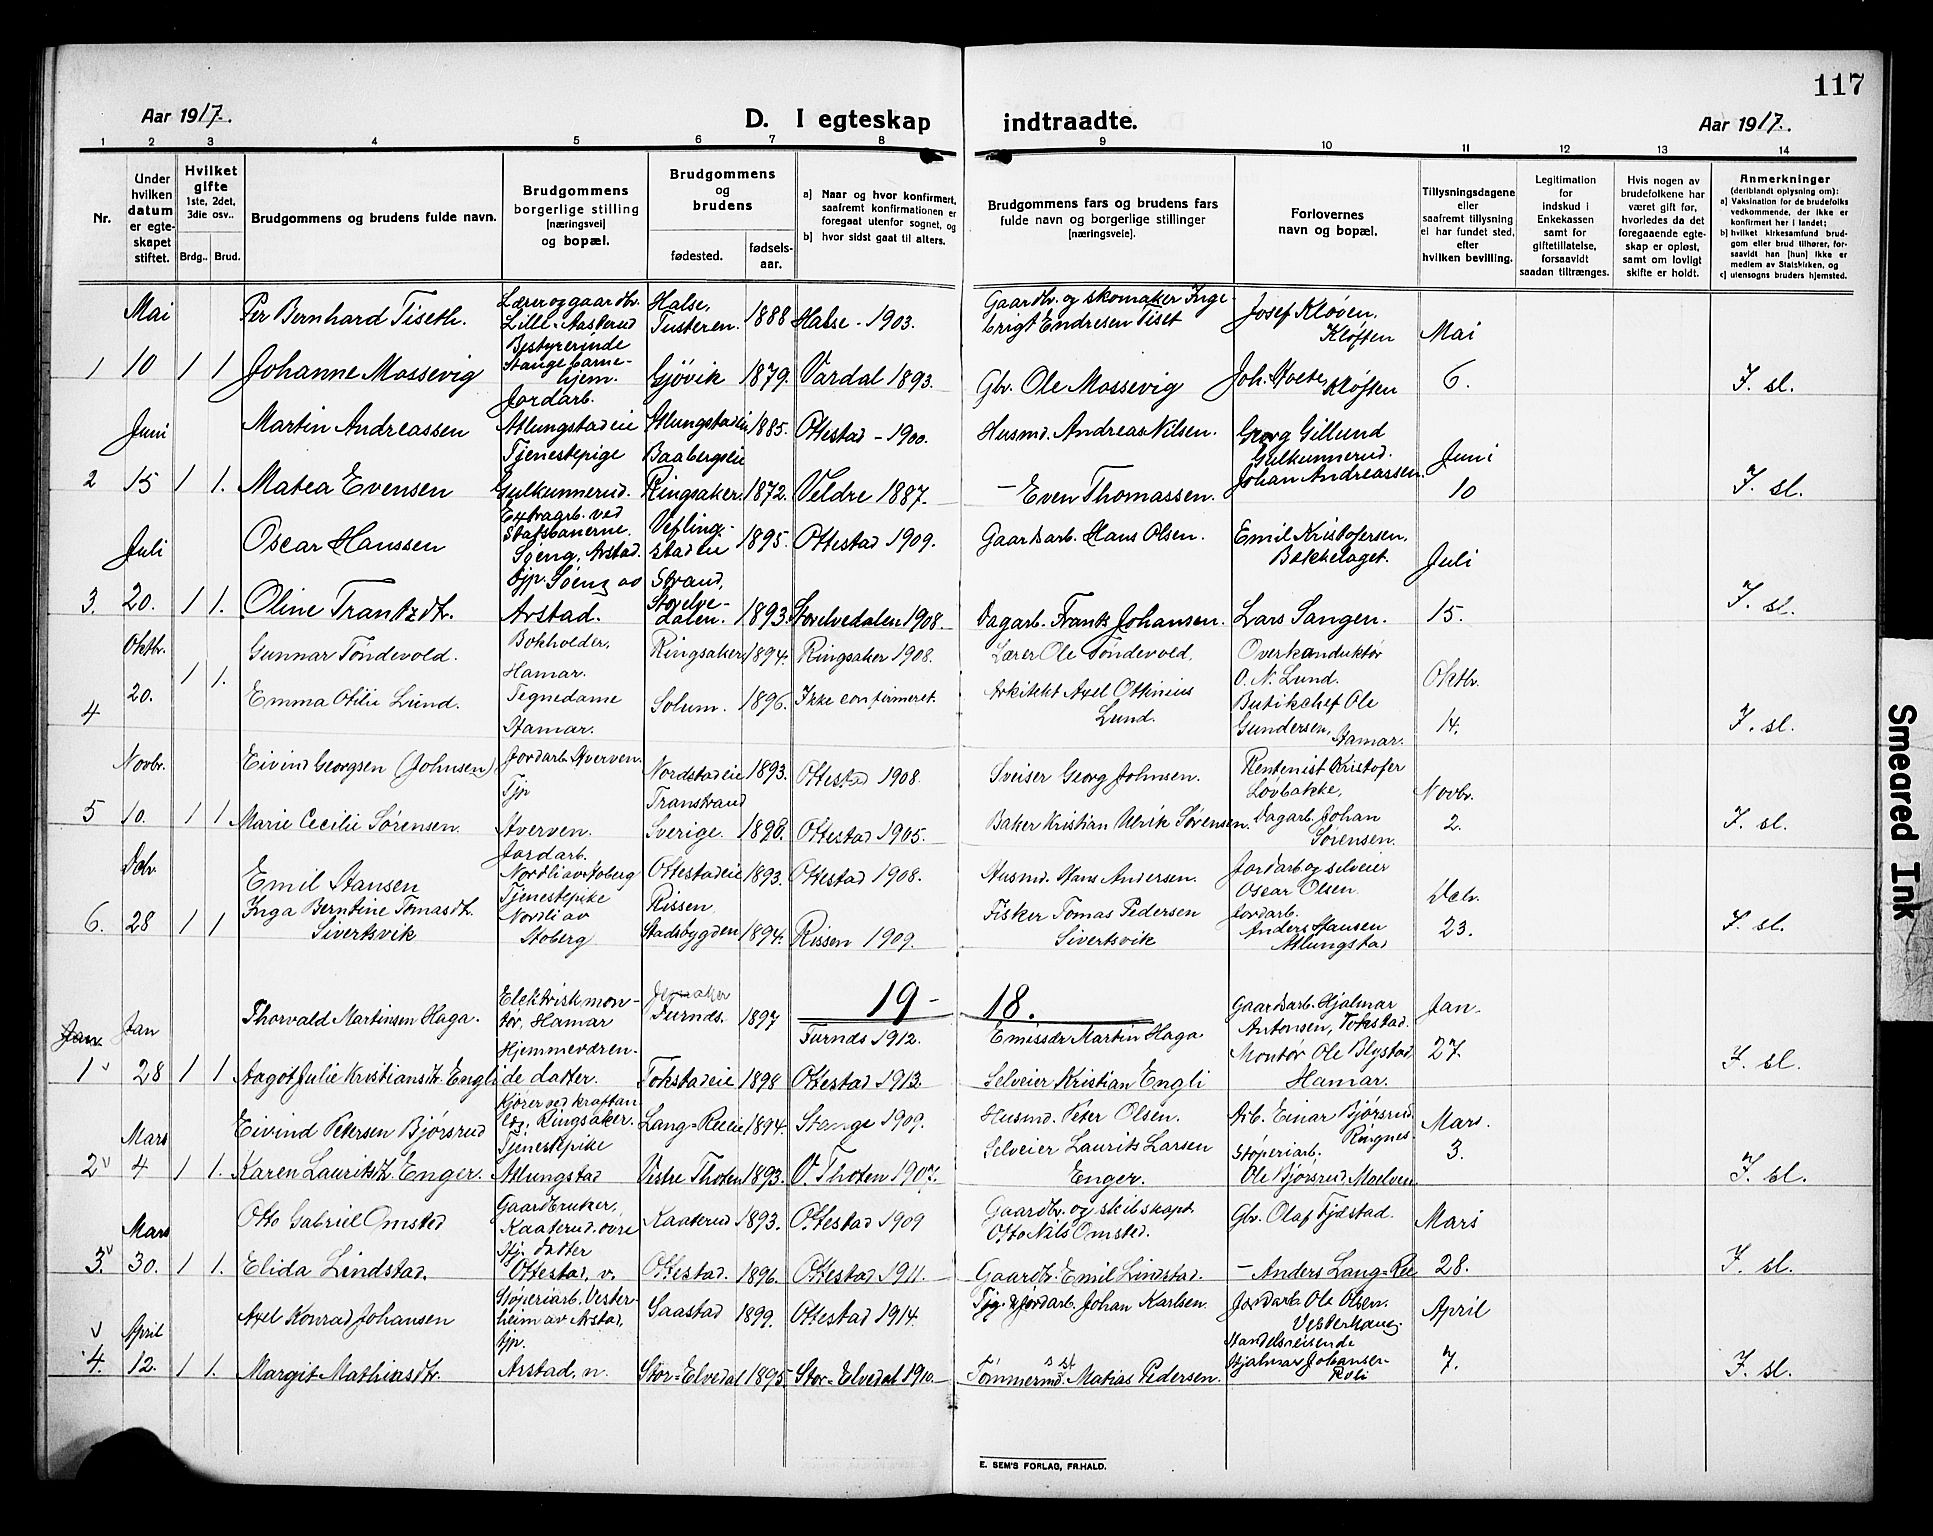 117
Aar 1917.
D. I egteskap indtraadte.
Aar 1917.
1 2 3 4 5 6 7 8 9 10 11 12 13 14
Nr.
Under hvilken datum er egteskapet stiftet.
Hvilket gifte 1ste, 2det, 3die osv..
Brdg.. Brud.
Brudgommens og brudens fulde navn.
Brudgommens borgerlige stilling [næringsvei] og bopæl.
Brudgommens og brudens
fødested.
fødselsaar.
a) Naar og hvor konfirmert, saafremt konfirmationen er foregaat utenfor sognet, og
b) hvor sidst gaat til alters.
Brudgommens fars og brudens fars fulde navn og borgerlige stillinger [næringsveie].
Forlovernes navn og bopæl.
Tillysningsdagene eller saafremt tillysning ei har fundet sted, efter hvilken bevilling.
Legitimation for indskud i Enkekassen samt for giftetillatelse, forsaavidt saadan tiltrænges.
Hvis nogen av brudefolkene har været gift før, hvorledes da det foregaaende egteskap er opløst, samt om lovligt skifte er holdt.
Anmerkninger (deriblandt oplysning om):
a) Vaksination for de brudefolks vedkommende, der ikke er konfirmert her i landet;
b) hvilket kirkesamfund brudgom eller brud tilhører, forsaavidt han [hun] ikke er medlem av Statskirken, og
c) utensogns bruders hjemsted.
Mai Per Bernhard Tiseth. Lærer og gaardbr. Lille-Aasterud Halse, Tusteren. 1888 Halse - 1903. Gaardbr. og skomaker Ingebrigt Endresen Tiset Josef Kløven, Kløften Mai
1 10 1 1 Johanne Mossevig Bestyrerinde Stange barnehjem. Gjövik 1879. Vardal 1893. Gbr. Ole Mossevig Joh. Kløften 6. F. sl.
Juni Martin Andreassen Jordarb. Atlungstadeie Atlungstadeie 1885. Ottestad - 1900. Husmd. Andreas Nilsen. Georg Gillund Gulkunnerud. Juni
2 15 1 1. Matea Evensen Tjenestepige Gulkunnerud. Baabergseie Ringsaker. 1872. Veldre 1887. - Even Thomassen. Johan Andreassen. 10 F. sl.
Juli Oscar Hanssen Extraarb. ved Statsbanerne. Soeng, Arstad. 1895. Ottestad 1909. Gaardsarb. Hans Olsen. Emil Kristofersen, Bekkelaget. Juli
3. 20. 1 1. Oline Frantzdtr. Tjp. Soeng av Arstad. Strand, Storelvedalen. 1893. Storelvedalen 1908. Dagarb. Frants Johansen. Lars Sangen. 15. F. sl.
Oktbr. Gunnar Töndevold. Bokholder, Hamar. Ringsaker 1894. Ringsaker 1908. Lærer Ole Töndevold. Overkonduktör O. N. Lund. Oktbr.
4 20. 1 1. Emma Otilie Lund. Tegnedame Hamar. Solum. 1896. Ikke confirmeret. Arkitekt Axel Ottinius Lund. Butikchef Ole Gundersen, Hamar. 14. F. sl.
Novbr. Eivind Georgsen (Johnsen) Jordarb. Hverven. Nordstadeie 1893. Ottestad 1908. Sveiser Georg Johnsen. Rentenist Kristofer Løvbakke, Novbr.
5 10. 1 1 Marie Cecilie Sørensen. Tjp Hverven. Transtrand Sverige. 1890. Ottestad 1905. Baker Kristian Ulrik Sørensen. Dagarb. Johan Sørensen. 2. F. sl.
Decbr. Emil Hansen Jordarb. Nordli av Hoberg Ottestadeie 1893. Ottestad 1908. Husmd. Hans Andersen. Jordarb. og selveier Oscar Olsen. Decbr.
6. 28 1 1 Inga Berntine Tomasdtr. Sivertsvik Tjenestepike Nordli av Hoberg Rissen Stadsbygden 1894. Rissen 1909. Fisker Tomas Pedersen Sivertsvik Jordarb. Anders Hansen Atlungstad 23. F. sl.
19 - 18.
Jan Jan Thorvald Martinsen Haga. Elektriskmontör, Hamar Furnds. 1897 Furnds 1912. Emissær Martin Haga Gaardsarb. Hjalmar Antonsen, Tokstad. Jan.
1 28 1 1 Aagot Julie Kristiansdtr. Engli Hjemmeværende datter. Tokstadeie 1898 Ottestad 1913. Selveier Kristian Engli Montør Ole Blystad Hamar. 27. F. sl.
Mars Eivind Petersen Bjørsrud Kjører ved kraftanlæg, Ringsaker. Lang-Reeie 1894. Stange 1909. Husmd. Peter Olsen. Arb. Einar Bjørsrud Ringnes. Mars.
2 4 1 1. Karen Lauritsdtr. Enger. Tjenestepike Atlungstad Vestre Thoten 1893. V. Thoten 1907. Selveier Laurits Larsen Enger. Støperiarb. Ole Bjørsrud, Moelven 3. F. sl.
Mars Otto Gabriel Omsted Gaardbruker, Kaaterud. övre Kaaterud 1893. Ottestad 1909 Gaardbr. og skibskapt. Otto Nils Omsted. Gbr. Olaf Fjæstad. Mars
3. 30. 1 1. Elida Lindstad. Hj. datter Ottestad, v. Ottestad. 1896. Ottestad 1911. Gaardbr. Emil Lindstad. - Anders Lang-Ree 28. F. sl.
April Axel Konrad Johansen Støperiarb. Vesterheim av Arstad, Saastad 1899. Ottestad 1914. Jordarb. Johan Karlsen. Jordarb. Ole Olsen. Vesterhaug April
4. 12. 1 1. Margit Mathiasdtr. Tjp. Arstad, n. Stor-Elvedal 1895. Stor-Elvedal 1910. Tømmermd. Matias Pedersen. Handelsreisende Hjalmar Johansen Roli 7. F. sl.
E. SEM'S FORLAG, FR.HALD.
Smeared Ink